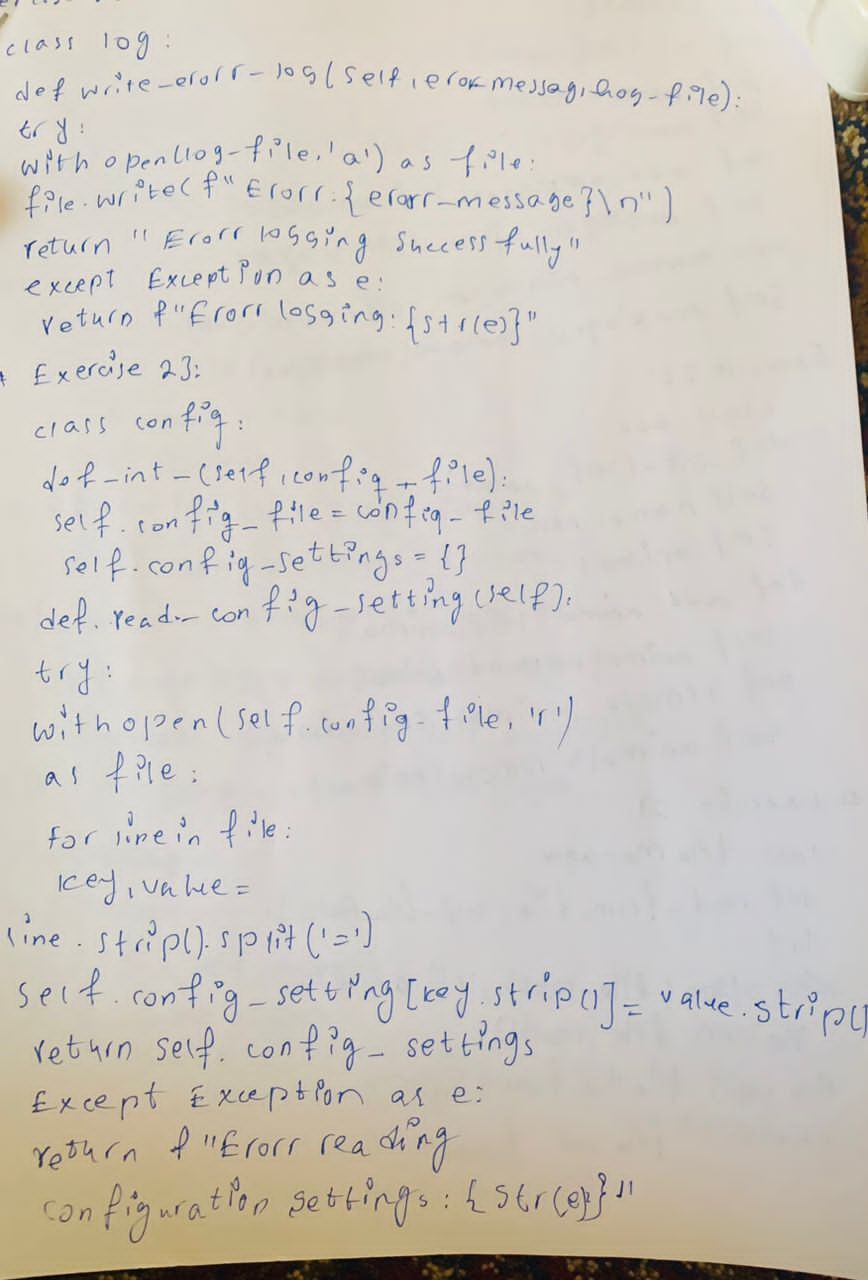 class log:
def write-erorr-log(self, eror message, log-file):
try:
with open(log-file, 'a') as file:
file.write(f"Erorr:{erorr-message}\n")
return "Erorr logging Successfully"
except Exception as e:
return f"Erorr logging:{str(e)}"
Exercise 23:
class config:
def-int-(self, config-file):
self.config_file = config-file
self.config-settings = {}
def.read-config_setting(self):
try:
with open(self.config-file, 'r')
as file:
for line in file:
key, value =
line.strip().split('=')
self.config_setting[key.strip()]= value.strip()
return self.config_settings
Except Exception as e:
return f"Erorr reading
configuration settings:{str(e)}"